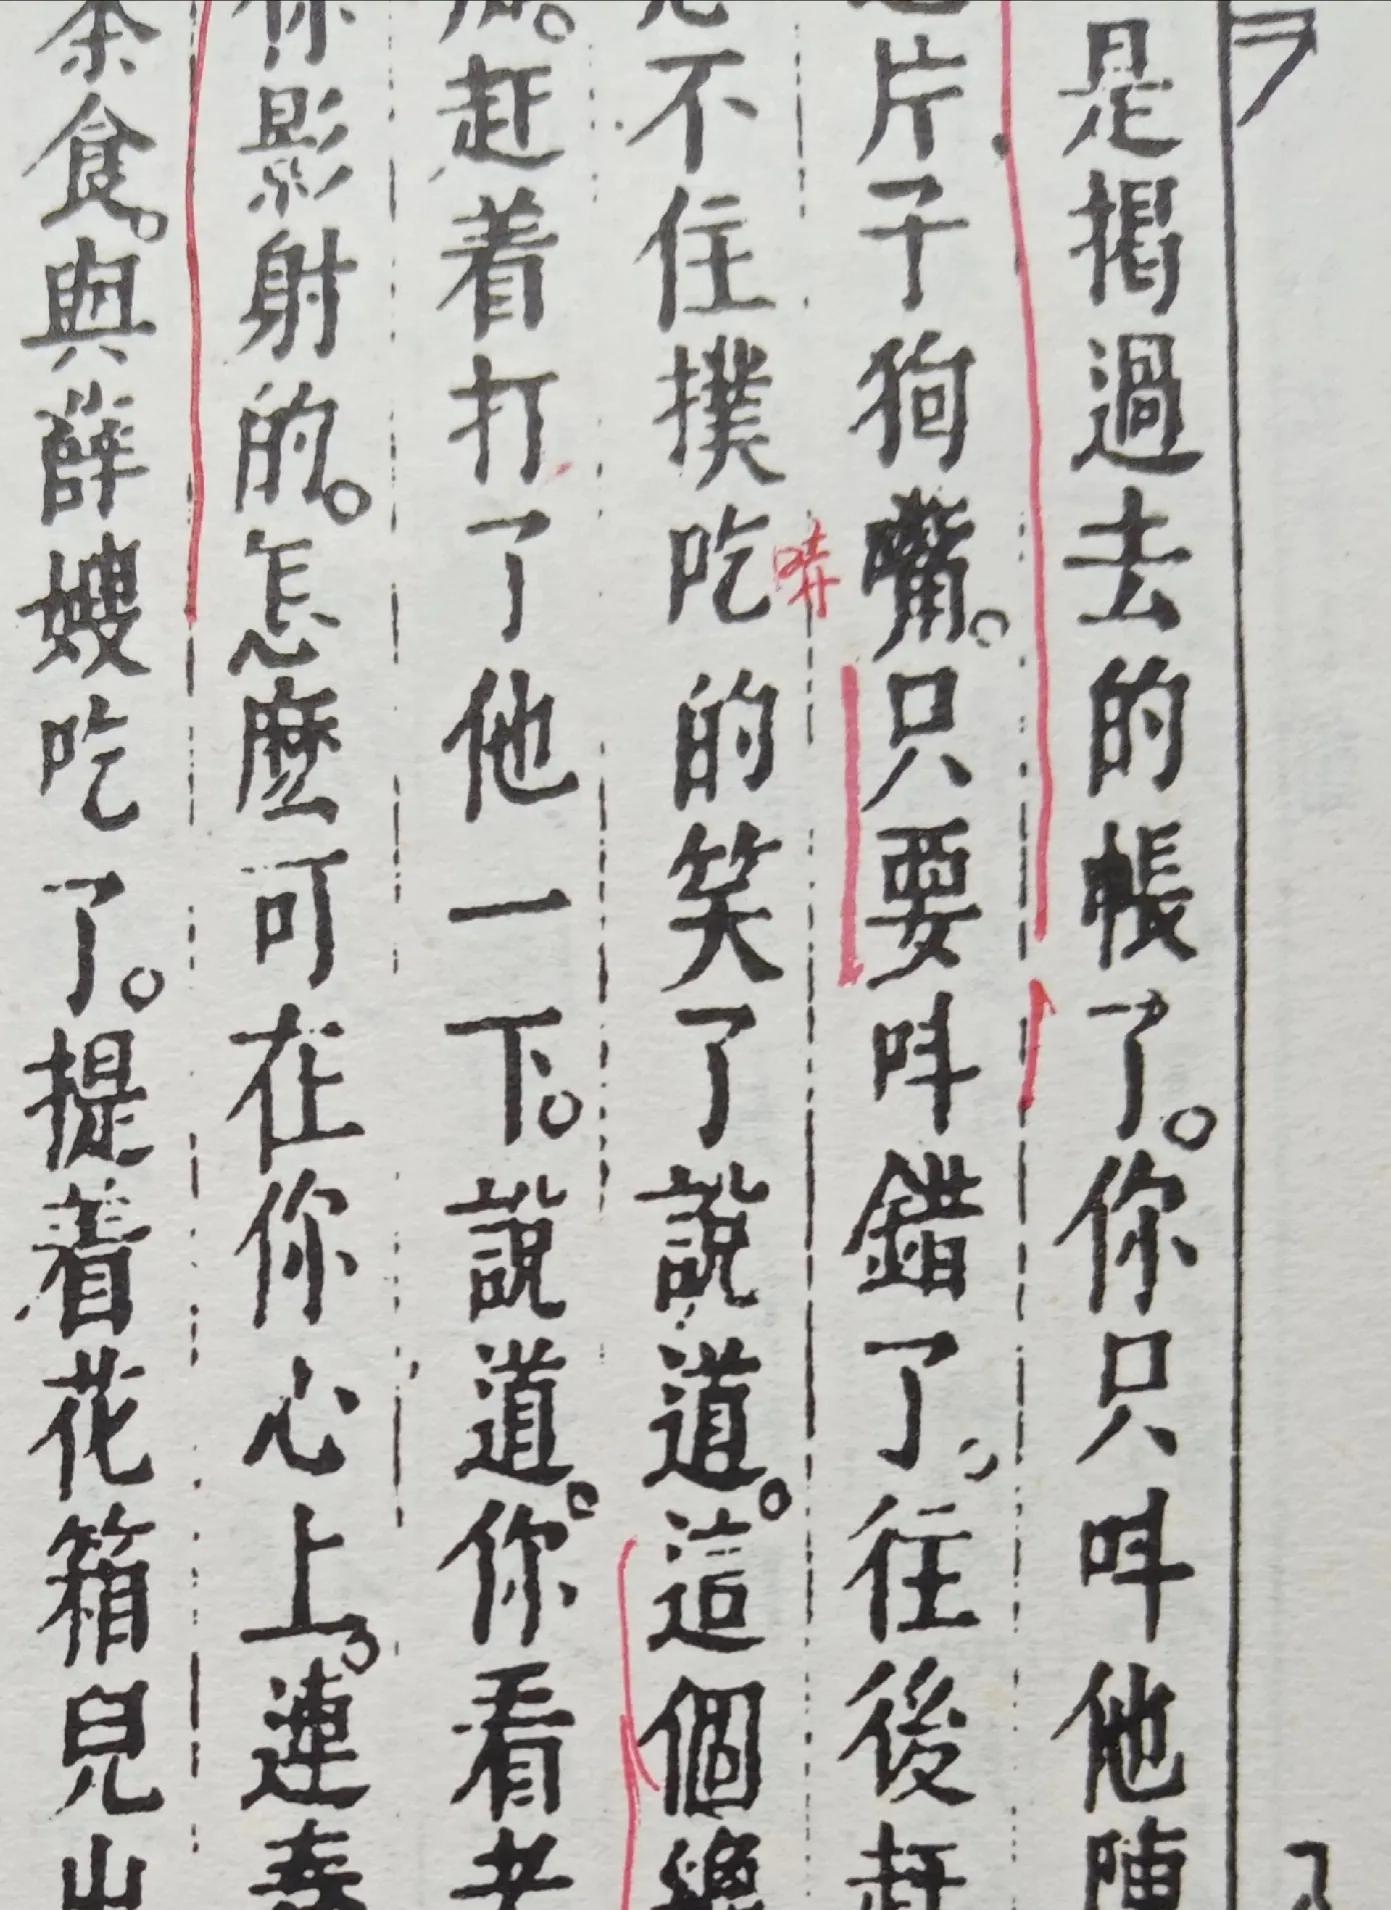 是揭過去的帳了。你只呌他陳
片子狗嘴。只要呌錯了，往後赶
不住撲吃的笑了說道。這個
哧
赶着打了他一下。說道。你看老
你影射的。怎麽可在你心上。連春
茶食。與薛嫂吃了。提着花箱兒出